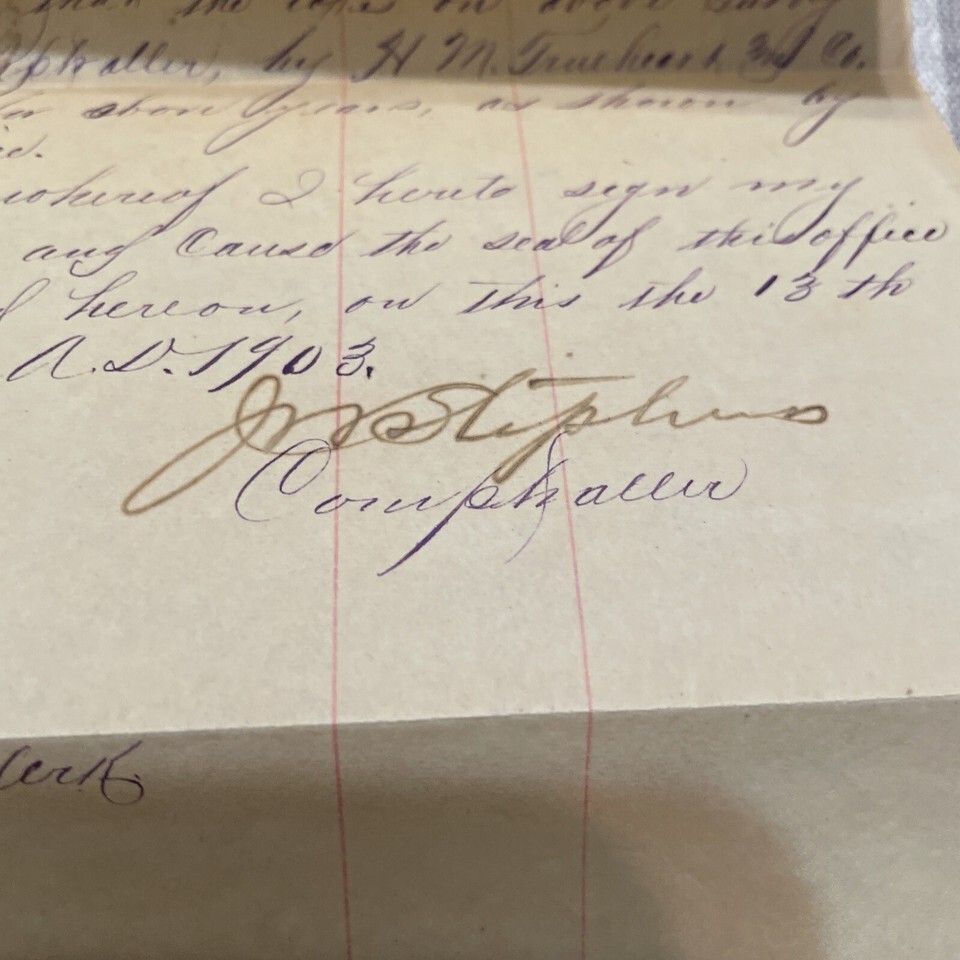 that the       on above
Comptroller, by H. M. Trueheart and Co.
for above years, as shown by
whereof I hereto sign my
and Cause the seal of this office
hereon, on this the 13th
A.D. 1903.
Stephens
Comptroller
Clerk